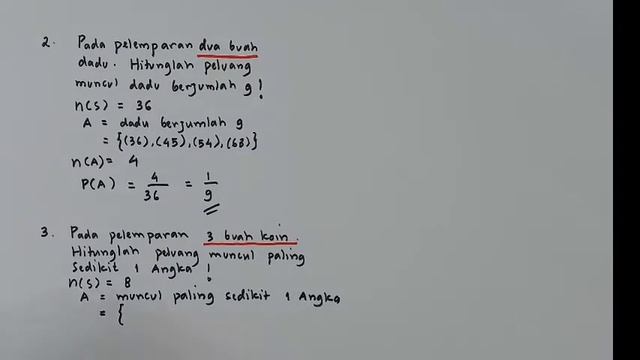 2. Pada pelemparan dua buah
dadu. Hitunglah peluang
muncul dadu berjumlah 9!
n(S) = 36
A = dadu berjumlah 9
= {(36), (45), (54), (63)}
n(A) = 4
P(A) = 4/36 = 1/9
3. Pada pelemparan 3 buah koin.
Hitunglah peluang muncul paling
Sedikit 1 Angka!
n(S) = 8
A = muncul paling sedikit 1 Angka
= {